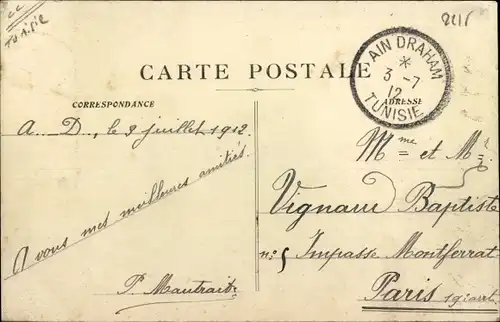 2215
CARTE POSTALE
AIN DRAHAM
*
3 -7
12
TUNISIE
CORRESPONDANCE
ADRESSE
A D, le 2 juillet 1912
A vous mes meilleures amitiés.
P. Mautrait
Mme et Mr
Vignaux Baptiste
no 5 Impasse Montferrat
Paris